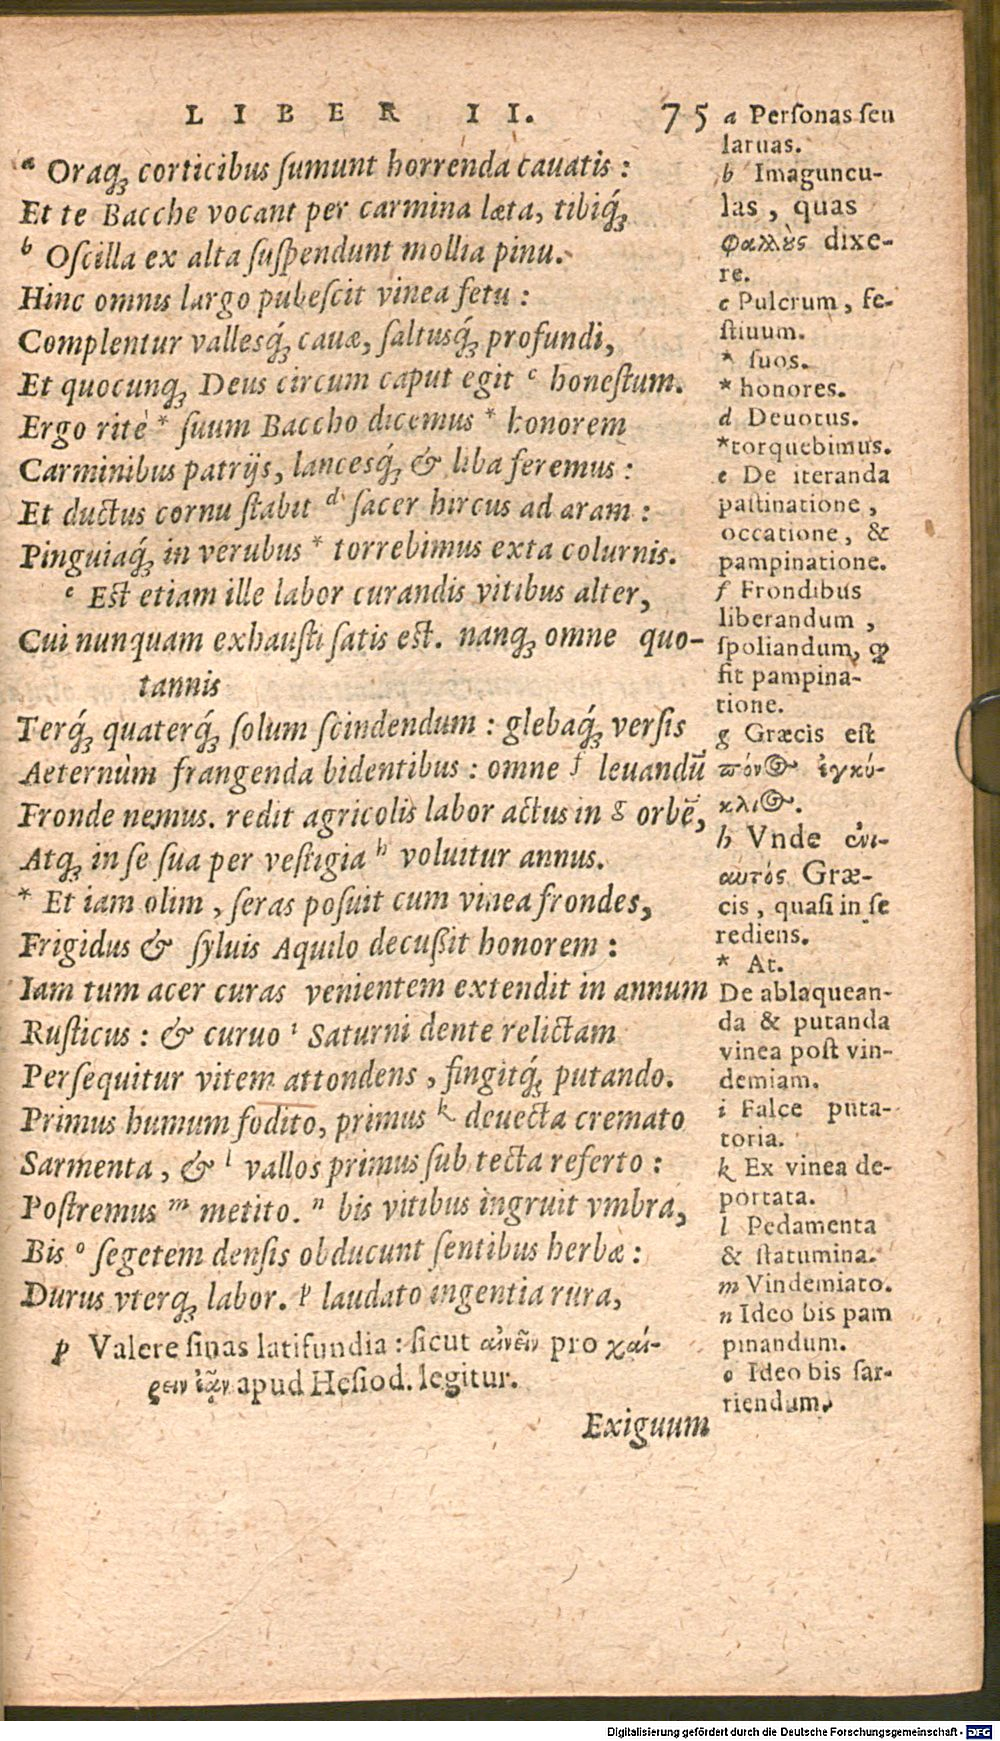 LIBER II. 75
a Oraq́ꝫ corticibus ſumunt horrenda cauatis :
Et te Bacche vocant per carmina læta, tibiq́ꝫ
b Oſcilla ex alta ſuſpendunt mollia pinu.
Hinc omnis largo pubeſcit vinea fetu :
Complentur vallesq́ꝫ cauæ, ſaltusq́ꝫ profundi,
Et quocunqꝫ Deus circum caput egit c honeſtum.
Ergo ritè * ſuum Baccho dicemus * honorem
Carminibus patrijs, lancesq́ꝫ & liba feremus :
Et ductus cornu ſtabit d ſacer hircus ad aram :
Pinguiaq́ꝫ in verubus * torrebimus exta colurnis.
e Eſt etiam ille labor curandis vitibus alter,
Cui nunquam exhauſti ſatis eſt. nanqꝫ omne quo-
tannis
Terq́ꝫ quaterq́ꝫ ſolum ſcindendum : glebaq́ꝫ verſis
Aeternùm frangenda bidentibus : omne f leuandū
Fronde nemus. redit agricolis labor actus in g orbē,
Atqꝫ in se sua per veſtigia h voluitur annus.
* Et iam olim, ſeras poſuit cum vinea frondes,
Frigidus & ſyluis Aquilo decußit honorem :
Iam tum acer curas venientem extendit in annum
Ruſticus : & curuo i Saturni dente relictam
Perſequitur vitem attondens, fingitq́ꝫ putando.
Primus humum fodito, primus k deuecta cremato
Sarmenta, & l vallos primus ſub tecta referto :
Poſtremus m metito. n bis vitibus ingruit vmbra,
Bis o ſegetem denſis obducunt ſentibus herbæ :
Durus vterqꝫ labor. p laudato ingentia rura,
p Valere ſinas latifundia : ſicut αἰνεῖν pro χαί-
ρειν ἐᾶν apud Heſiod. legitur.
Exiguum
a Perſonas ſeu
laruas.
b Imaguncu-
las, quas
φαλλοὺς dixe-
re.
c Pulcrum, fe-
ſtiuum.
* ſuos.
* honores.
d Deuotus.
* torquebimus.
e De iteranda
paſtinatione,
occatione, &
pampinatione.
f Frondibus
liberandum,
ſpoliandum, ꝙ
fit pampina-
tione.
g Græcis eſt
πόνος ἐγκύ-
κλιος.
h Vnde ἐνι-
αυτός Græ-
cis, quaſi in ſe
rediens.
* At.
De ablaquean-
da & putanda
vinea poſt vin-
demiam.
i Falce puta-
toria.
k Ex vinea de-
portata.
l Pedamenta
& ſtatumina.
m Vindemiato.
n Ideo bis pam
pinandum.
o Ideo bis ſar-
riendum.
Digitalisierung gefördert durch die Deutsche Forschungsgemeinschaft - DFG